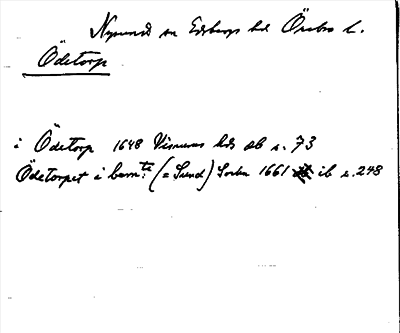 Nysund sn Edsbergs hd Örebro l.
Ödetorp
i Ödetorp 1648 Visnums hds db s. 73
Ödetorpet i bem:te (= Sund) Socken 1661 ib s. 248